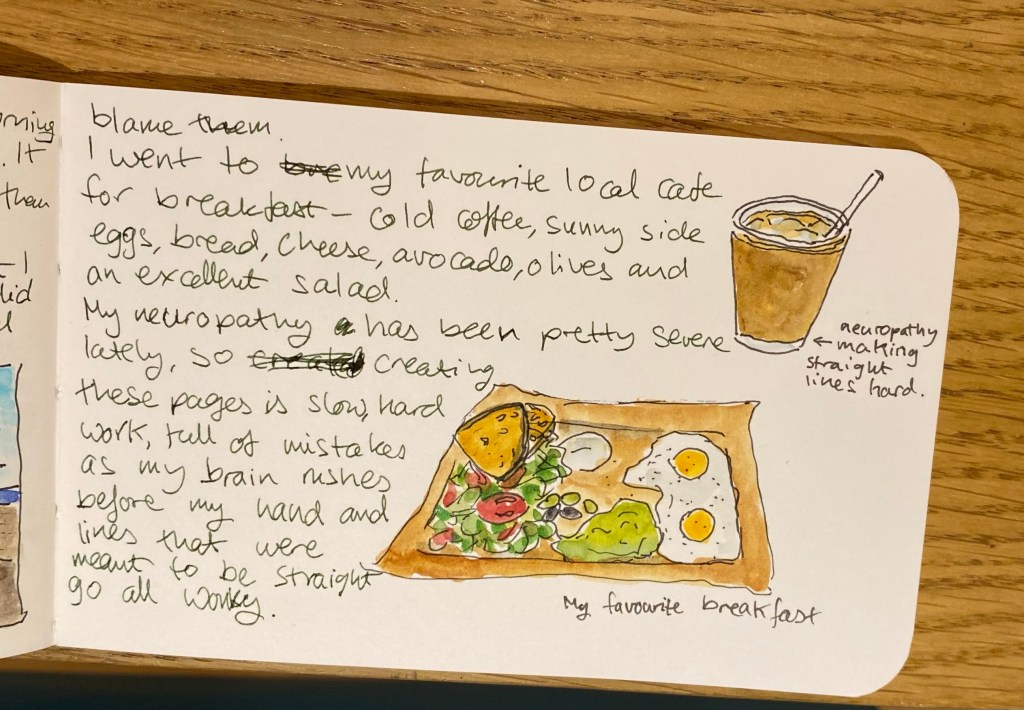 rning
. It
them
– I
did
blame them.
I went to my favourite local cafe
for breakfast – cold coffee, sunny side
eggs, bread, cheese, avocado, olives and
an excellent salad.
My neuropathy has been pretty severe
lately, so creating
these pages is slow, hard
work, full of mistakes
as my brain rushes
before my hand and
lines that were
meant to be straight
go all wonky.
neuropathy
← making
straight
lines hard.
My favourite breakfast